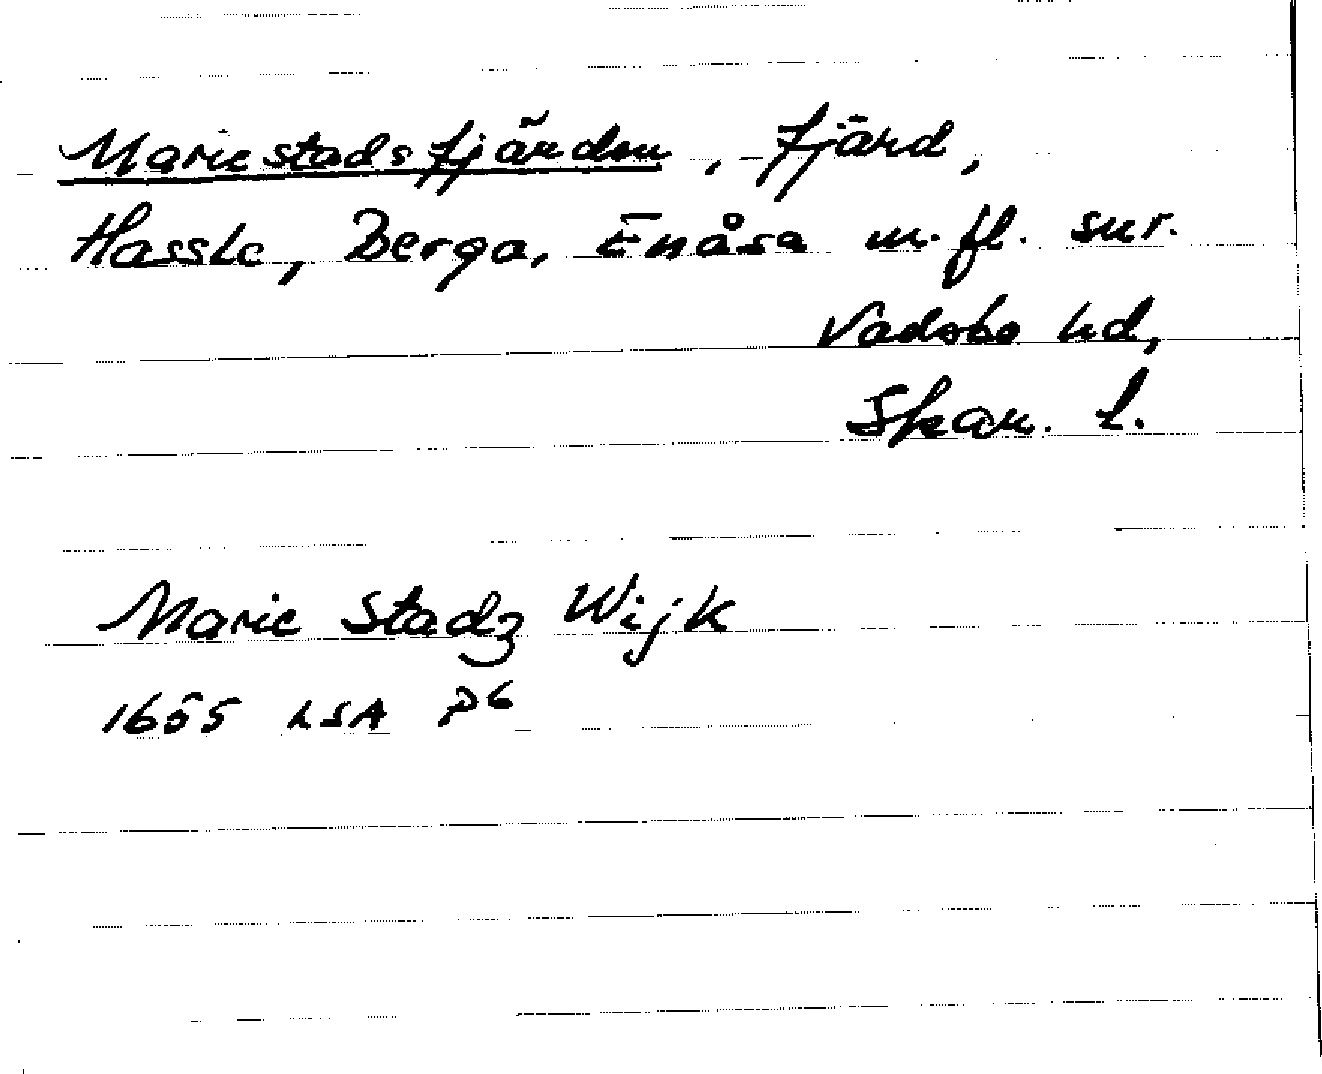 Mariestadsfjärden, fjärd,
Hassle, Berga, Enåsa m. fl. snr.
Vadsbo hd,
Skar. l.
Marie Stadz Wijk
1655 LSA P6